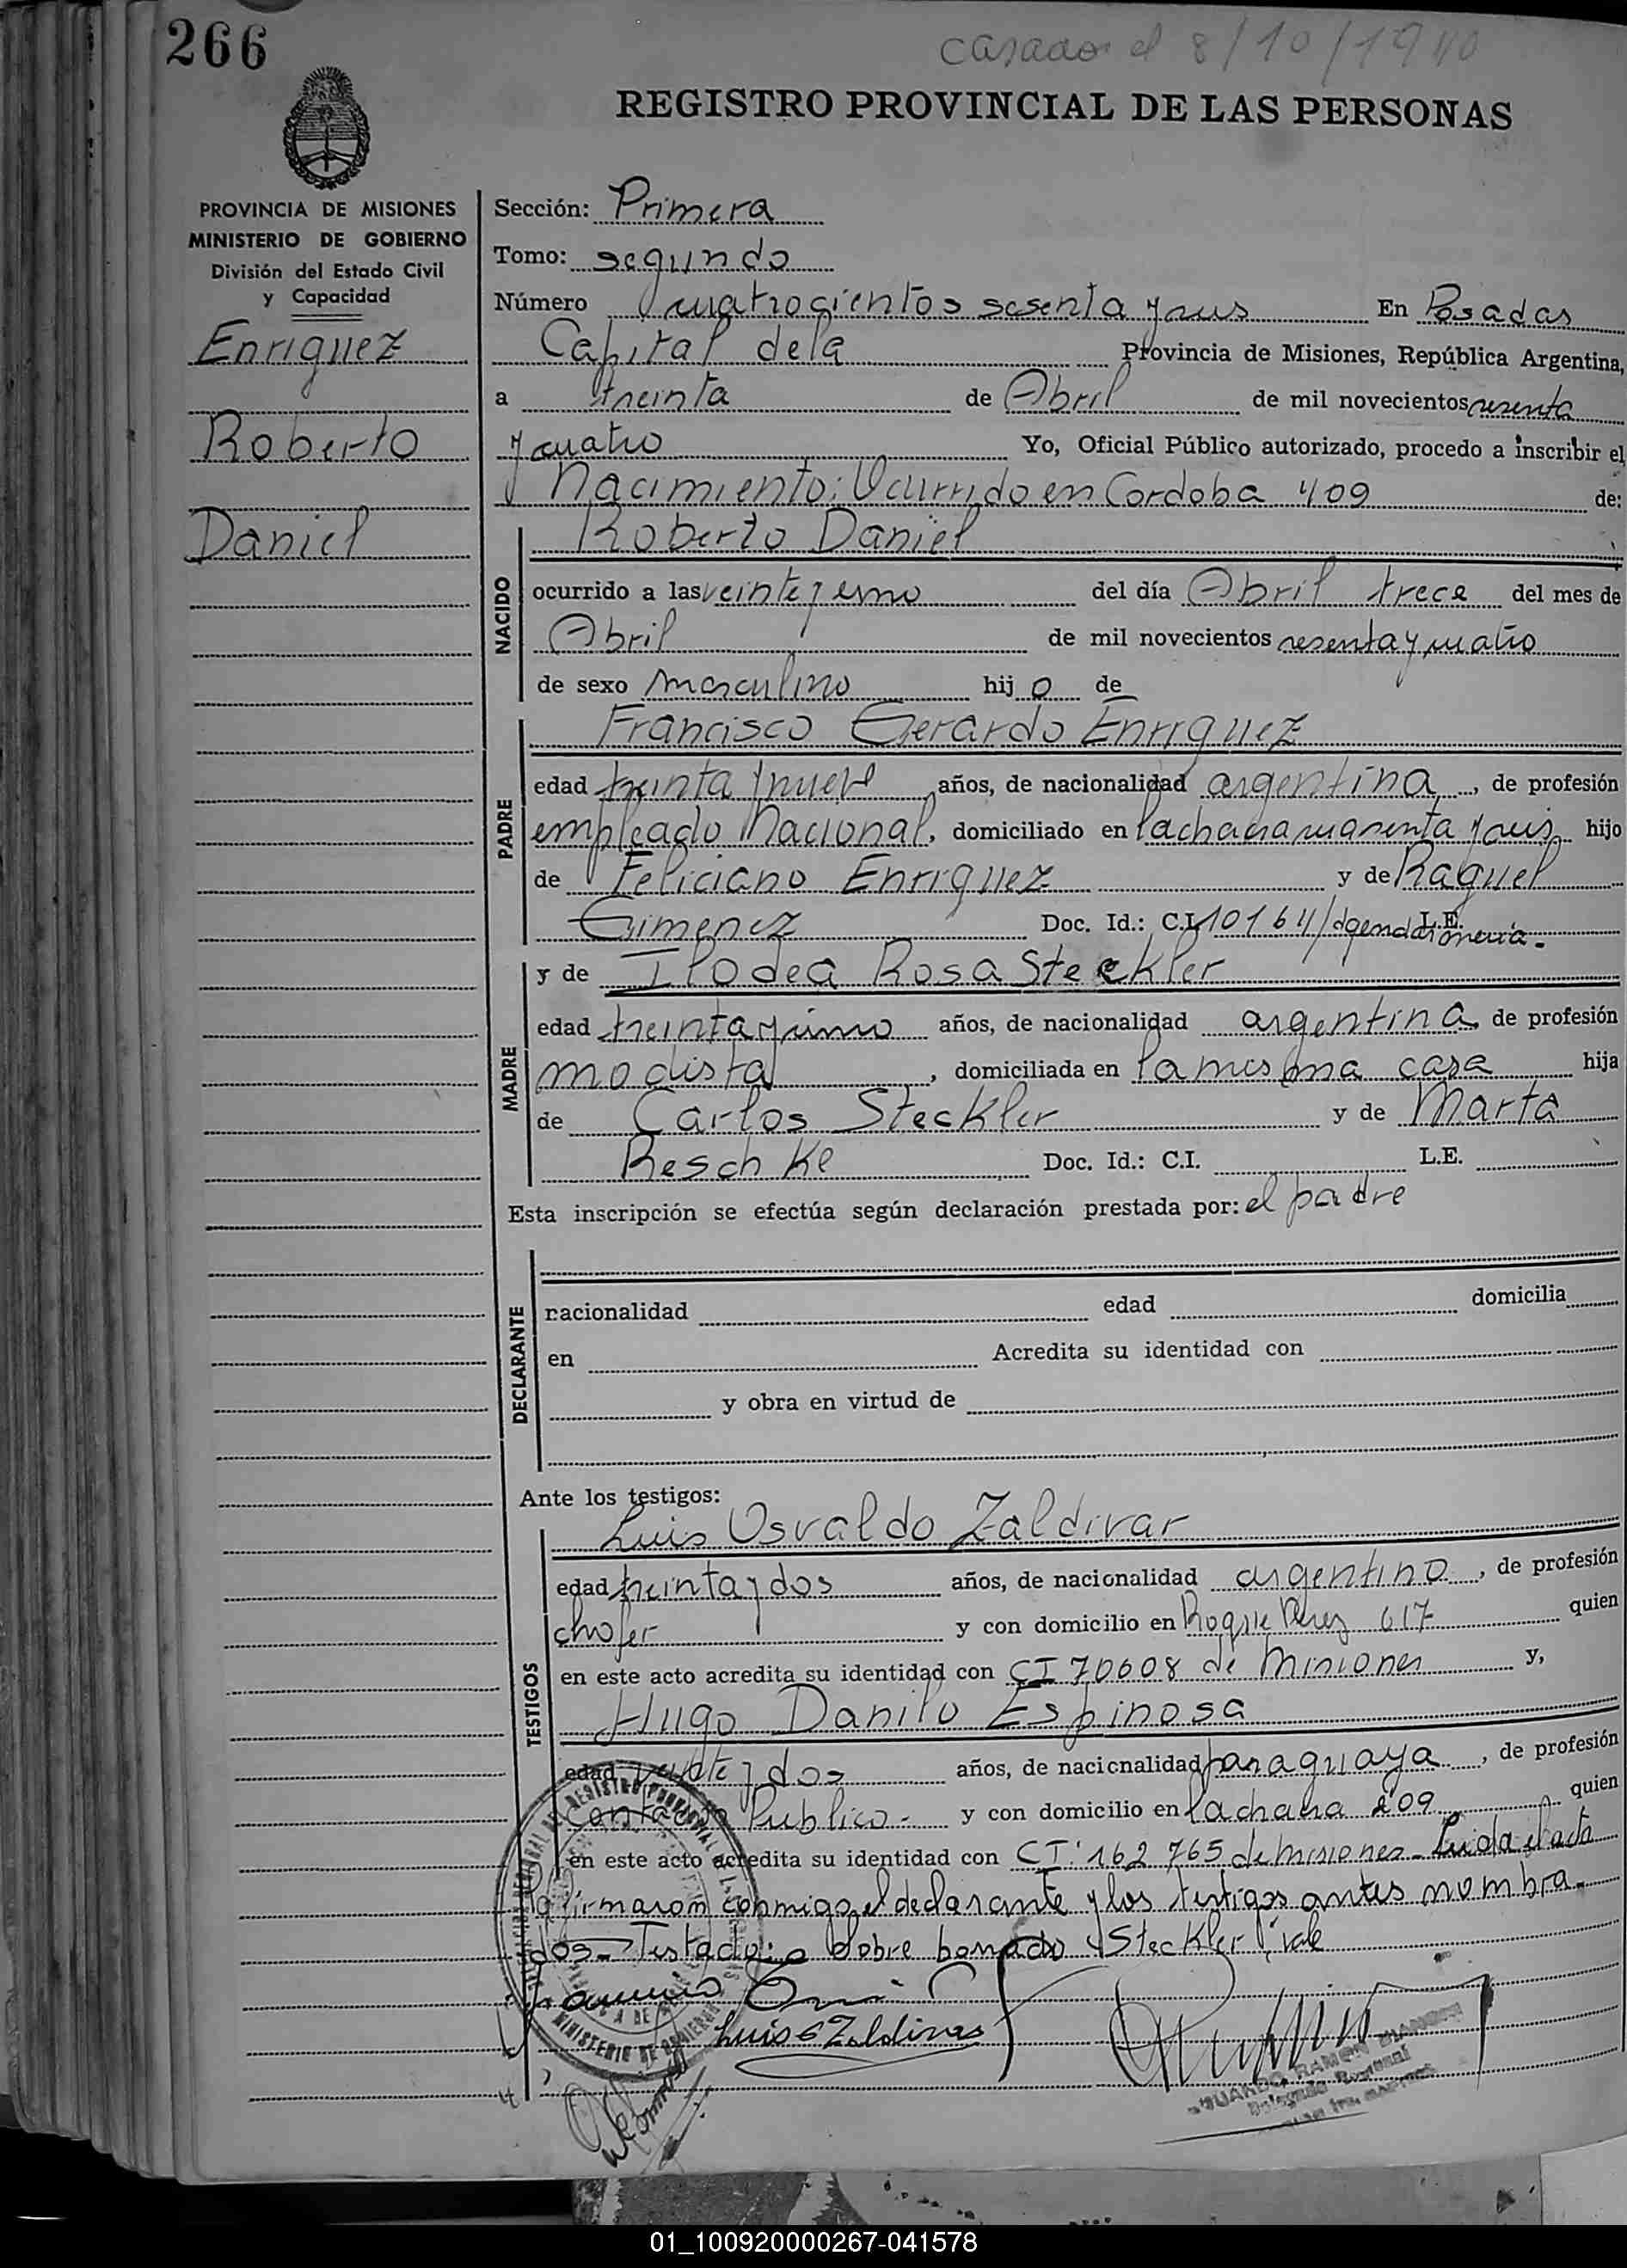 266
casado el 8/10/1940
REGISTRO PROVINCIAL DE LAS PERSONAS
PROVINCIA DE MISIONES
MINISTERIO DE GOBIERNO
División del Estado Civil
y Capacidad
Enriquez
Roberto
Daniel
Sección: Primera
Tomo: segundo
Número cuatrocientos sesenta y seis En Posadas
Capital de la Provincia de Misiones, República Argentina,
a treinta de Abril de mil novecientos sesenta
y cuatro Yo, Oficial Público autorizado, procedo a inscribir el
Nacimiento: Ocurrido en Cordoba 409 de:
NACIDO
Roberto Daniel
ocurrido a las veinte y uno del día Abril trece del mes de
Abril de mil novecientos sesenta y cuatro
de sexo masculino hijo de
PADRE
Francisco Gerardo Enriquez
edad treinta y nueve años, de nacionalidad argentina, de profesión
empleado Nacional, domiciliado en la chacra cuarenta y seis hijo
de Feliciano Enriquez y de Raquel
Gimenez Doc. Id.: C.I. 10164/ L.E.
MADRE
y de Ilodea Rosa Steckler
edad treinta y uno años, de nacionalidad argentina, de profesión
modista, domiciliada en la misma casa hija
de Carlos Steckler y de Marta
Reschke Doc. Id.: C.I. L.E.
Esta inscripción se efectúa según declaración prestada por: el padre
DECLARANTE
nacionalidad edad domicilia
en Acredita su identidad con
y obra en virtud de
Ante los testigos:
TESTIGOS
Luis Osvaldo Zaldivar
edad treinta y dos años, de nacionalidad argentino, de profesión
chofer y con domicilio en Roque Perez 617 quien
en este acto acredita su identidad con CI 70608 de Misiones y,
Hugo Danilo Espinosa
edad veinte y dos años, de nacionalidad paraguaya, de profesión
Contador Publico- y con domicilio en la chacra 209 quien
en este acto acredita su identidad con CI: 162765 de misiones- Leida el acta
la firmaron conmigo, el declarante y los testigos antes nombra-
dos- Testado: o Sobre borrado Steckler: vale
Luis O Zaldivar
RAMON
01_100920000267-041578